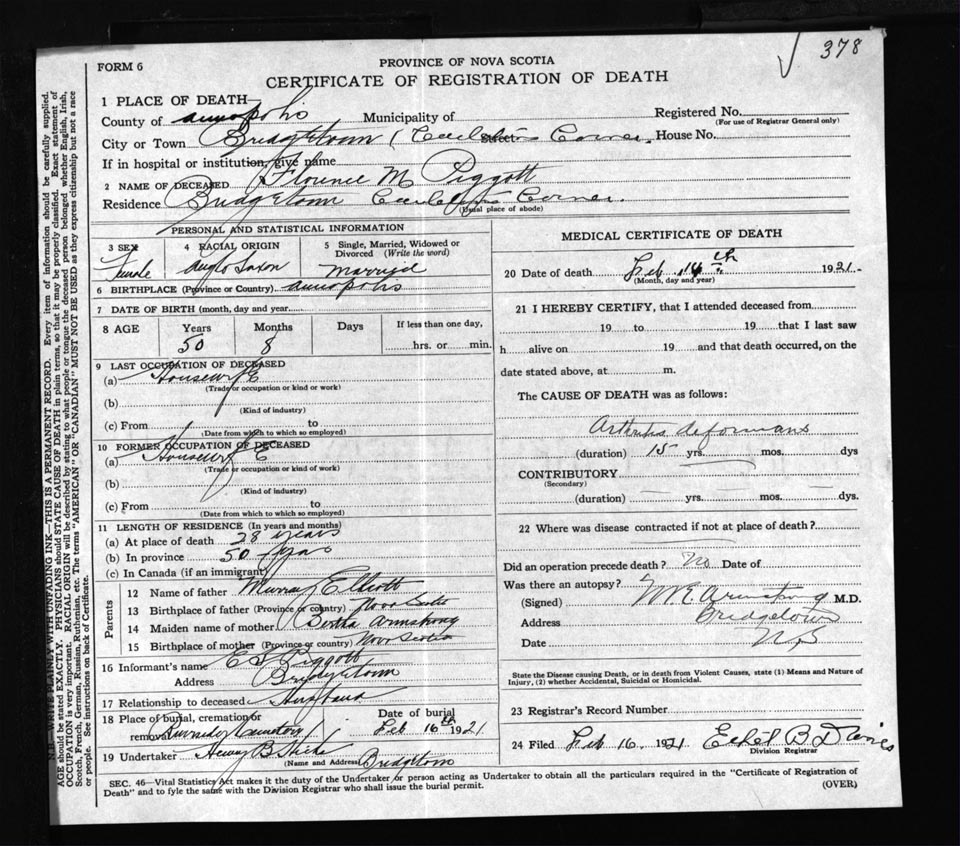 378
FORM 6
PROVINCE OF NOVA SCOTIA
CERTIFICATE OF REGISTRATION OF DEATH
1 PLACE OF DEATH—
County of Annapolis Municipality of Registered No.
(For use of Registrar General only)
City or Town Bridgetown Street Corner. House No.
If in hospital or institution, give name
2 NAME OF DECEASED Florence M Piggott
Residence Bridgetown Corner.
(Usual place of abode)
PERSONAL AND STATISTICAL INFORMATION
3 SEX 4 RACIAL ORIGIN 5 Single, Married, Widowed or Divorced (Write the word)
Female Anglo Saxon Married
6 BIRTHPLACE (Province or Country) Annapolis
7 DATE OF BIRTH (month, day and year)
8 AGE Years Months Days If less than one day,
50 8 hrs. or min.
9 LAST OCCUPATION OF DECEASED
(a) HousewifE
(Trade or occupation or kind or work)
(b)
(Kind of industry)
(c) From to
(Date from which to which so employed)
10 FORMER OCCUPATION OF DECEASED
(a) HousewifE
(Trade or occupation or kind of work)
(b)
(Kind of industry)
(c) From to
(Date from which to which so employed)
11 LENGTH OF RESIDENCE (In years and months)
(a) At place of death 28 years
(b) In province 50 years
(c) In Canada (if an immigrant)
Parents
12 Name of father Murray Elliott
13 Birthplace of father (Province or country) Nova Scotia
14 Maiden name of mother Bertha Armstrong
15 Birthplace of mother (Province or country) Nova Scotia
16 Informant's name E S Piggott
Address Bridgetown
17 Relationship to deceased Husband
18 Place of burial, cremation or removal Riverside Cemetery Date of burial Feb 16th 1921
19 Undertaker Hicks
(Name and Address) Bridgetown
MEDICAL CERTIFICATE OF DEATH
20 Date of death Feb 14th 1921
(Month, day and year)
21 I HEREBY CERTIFY, that I attended deceased from
19 to 19 that I last saw
h alive on 19 and that death occurred, on the
date stated above, at m.
The CAUSE OF DEATH was as follows:
Arthritis deformans
(duration) 15 yrs. mos. dys
CONTRIBUTORY
(Secondary)
(duration) yrs. mos. dys.
22 Where was disease contracted if not at place of death?
Did an operation precede death? No Date of
Was there an autopsy?
(Signed) Armstrong M.D.
Address Bridgetown
Date N.S
State the Disease causing Death, or in death from Violent Causes, state (1) Means and Nature of
Injury, (2) whether Accidental, Suicidal or Homicidal.
23 Registrar's Record Number
24 Filed Feb 16, 1921 B
Division Registrar
SEC. 46—Vital Statistics Act makes it the duty of the Undertaker or person acting as Undertaker to obtain all the particulars required in the "Certificate of Registration of
Death" and to fyle the same with the Division Registrar who shall issue the burial permit. (OVER)
N.B.—WRITE PLAINLY WITH UNFADING INK—THIS IS A PERMANENT RECORD. Every item of information should be carefully supplied.
AGE should be stated EXACTLY. PHYSICIANS should STATE CAUSE OF DEATH in plain terms, so that it may be properly classified. Exact statement of
OCCUPATION is very important. RACIAL ORIGIN will be described by stating to what people or tongue the deceased person belonged whether English, Irish,
Scotch, French, German, Russian, Ruthenian, etc. The terms "AMERICAN" OR "CANADIAN" MUST NOT BE USED as they express citizenship but not a race
or people. See instructions on back of Certificate.